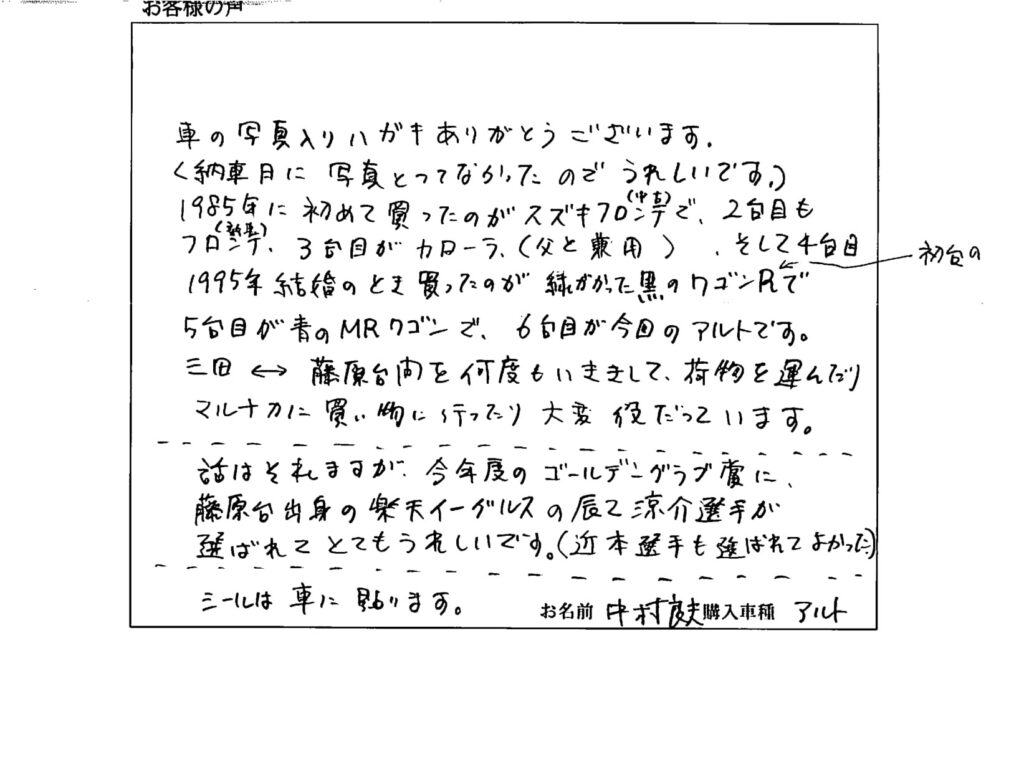 お客様の声
車の写真入りハガキありがとうございます.
(納車日に写真とってなかったのでうれしいです。)
1985年に初めて買ったのがスズキフロンテ(中古)で、2台目も
フロンテ(新車)、3台目がカローラ、(父と兼用)、そして4台目
初台の
1995年結婚のとき買ったのが緑がかった黒のワゴンRで
5台目が青のMRワゴンで、6台目が今回のアルトです。
三田↔藤原台間を何度もいききして、荷物を運んだり
マルナカに買い物に行ったり大変役だっています。
話はそれますが、今年度のゴールデングラブ賞に、
藤原台出身の楽天イーグルスの辰て涼介選手が
選ばれてとてもうれしいです。(近本選手も選ばれてよかった)
シールは車に貼ります。
お名前 中村良夫 購入車種 アルト